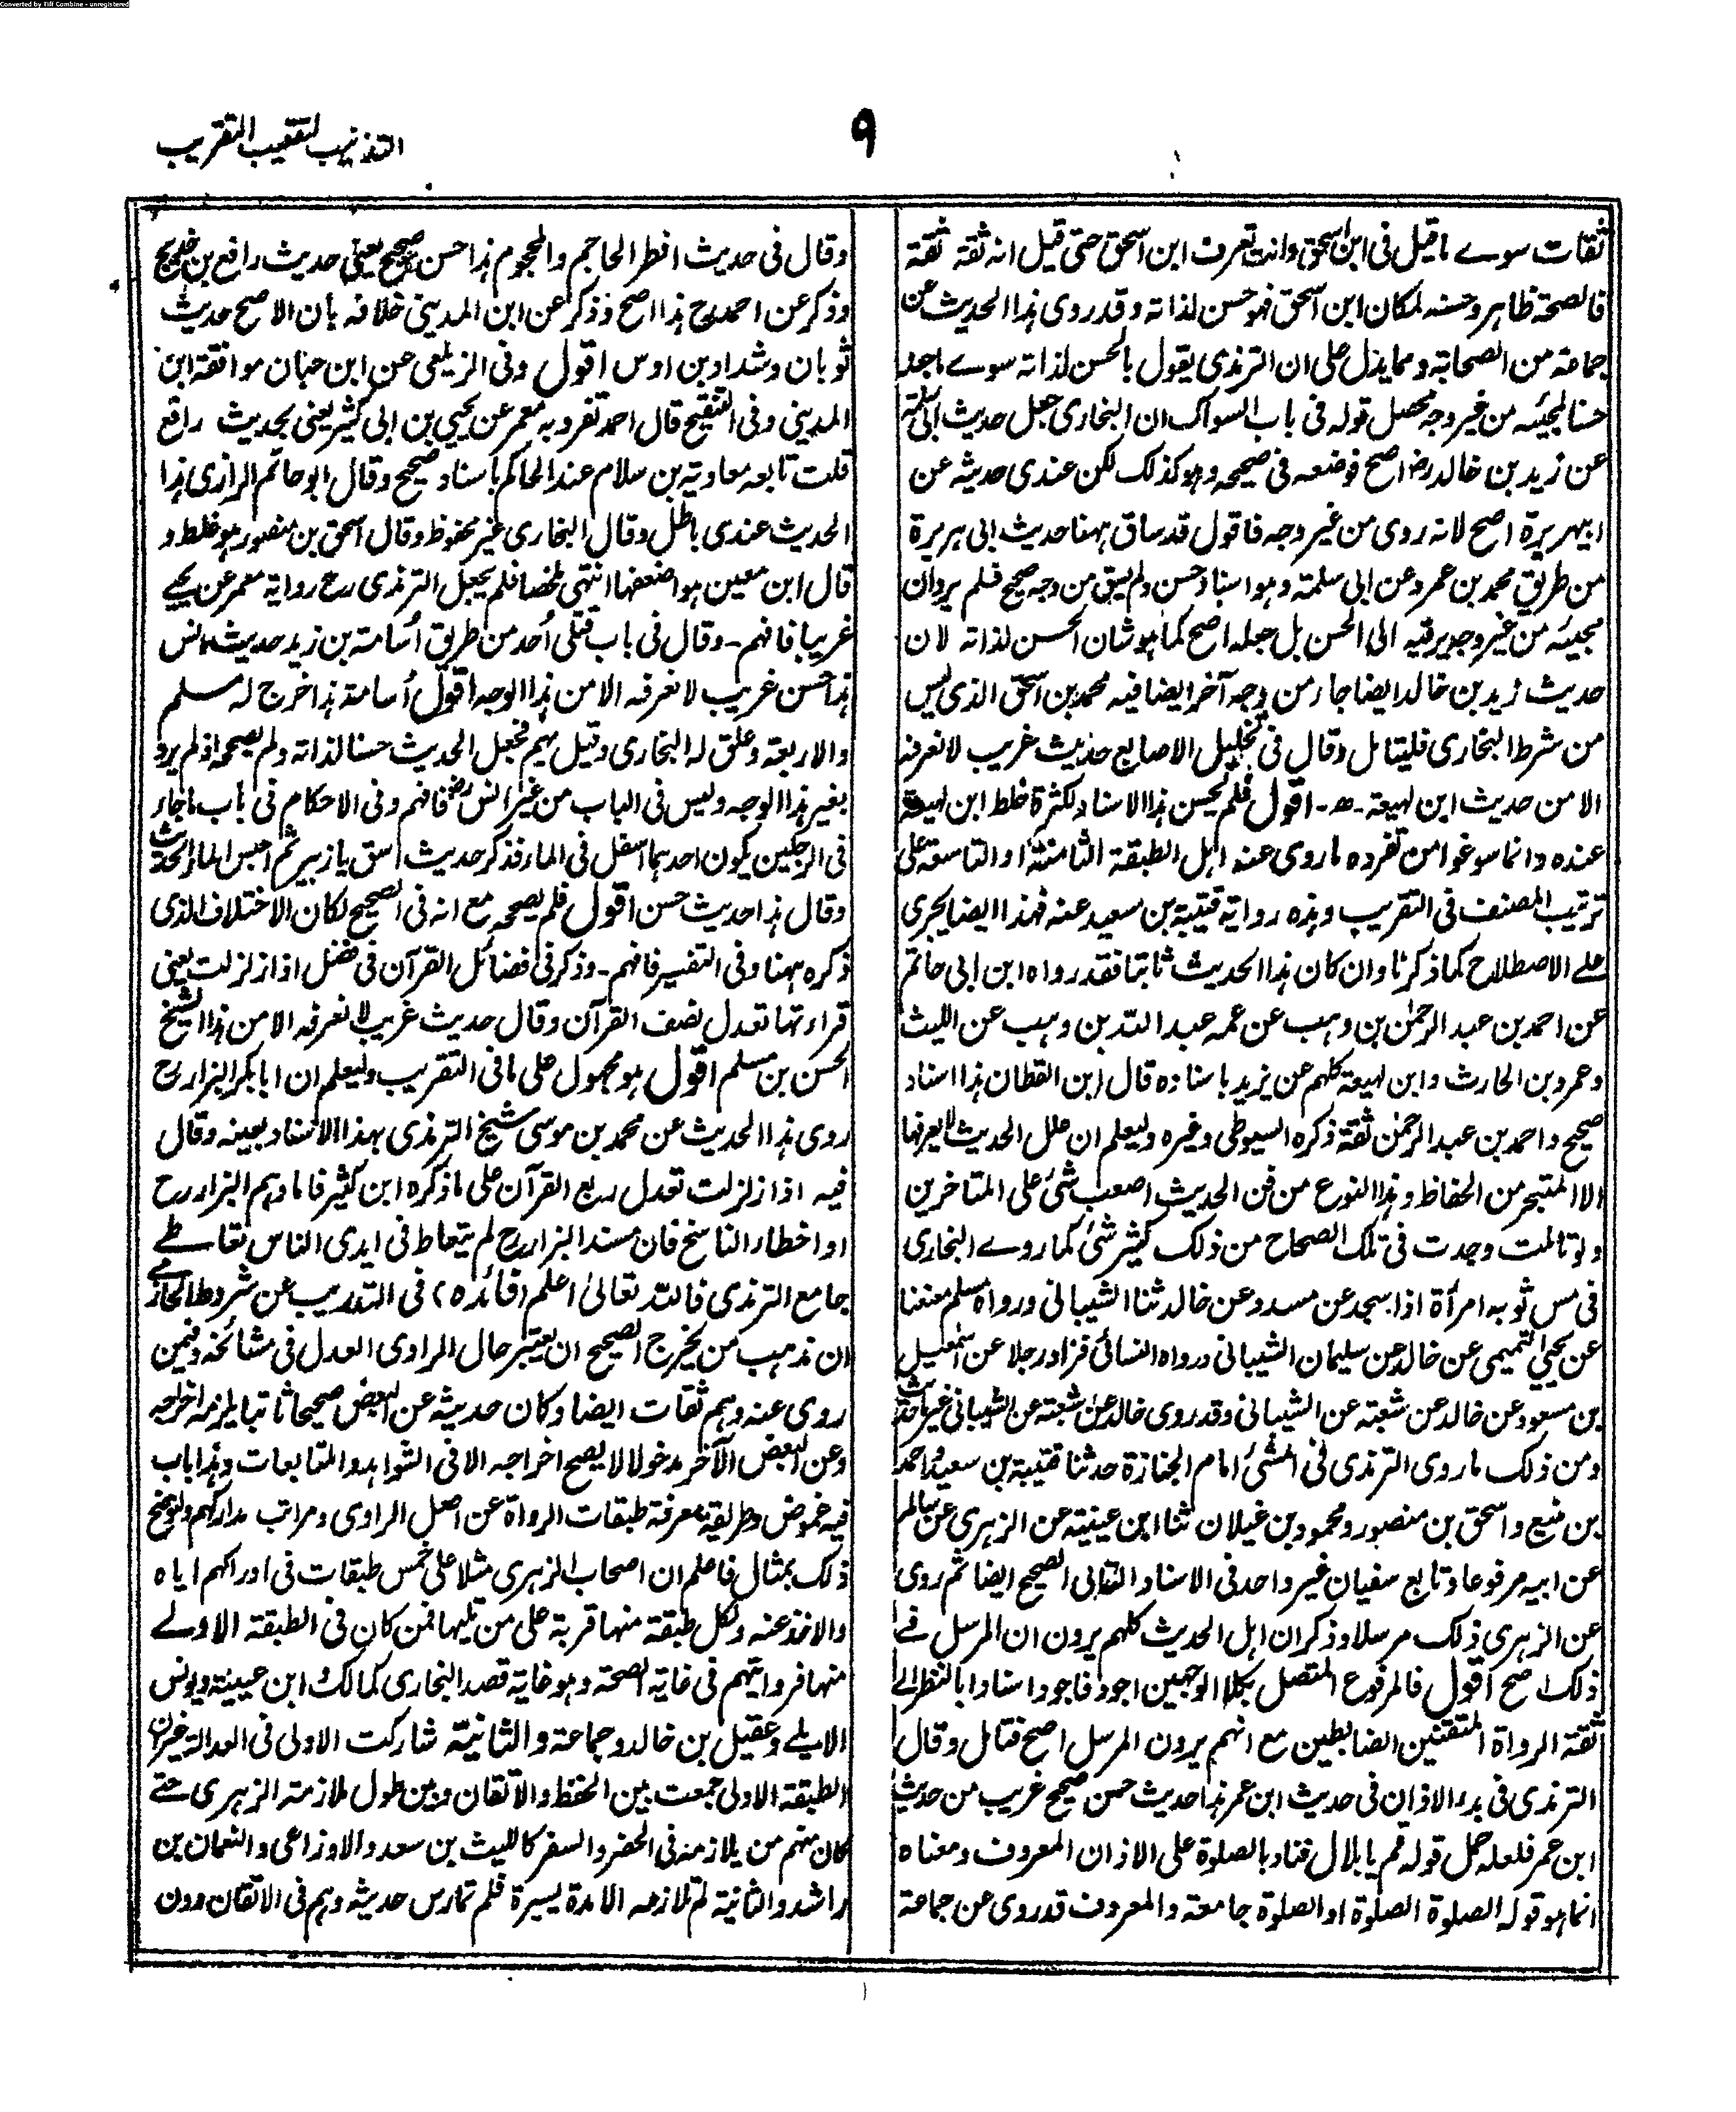 Converted by Tiff Combine - unregistered
۹
التذنيب لتعقيب التقريب
ثقات سوے ما قيل فى ابن اسحق وانت تعرف ابن اسحق حتى قيل انه ثقة ثقة
فالصحة ظاهر وحسنه لمكان ابن اسحق فهو حسن لذاته وقد روى هذا الحديث عن
جماعة من الصحابة ومما يدل على ان الترمذى يقول بالحسن لذاته سوے ما عد
حسنا لمجيئه من غير وجه محصل قوله فى باب السواك ان البخارى جعل حديث ابى سلمة
عن زيد بن خالد رضـ اصح فوضعه فى صحيحه وهو كذلك لكن عندى حديثه عن
ابيهريرة اصح لانه روى من غير وجه فاقول قد ساق ههنا حديث ابى هريرة
من طريق محمد بن عمرو عن ابى سلمة وهو اسناد حسن ولم يسق من وجه صحيح فلم يرد ان
مجيئه من غير وجه يرقيه الى الحسن بل جعله اصح كما هو شان الحسن لذاته لان
حديث زيد بن خالد ايضا جاء من وجه آخر ايضا فيه محمد بن اسحق الذى ليس
من شرط البخارى فليتامل وقال فى تخليل الاصابع حديث غريب لا نعرفه
الا من حديث ابن لهيعة -ه- اقول فلم يحسن هذا الاسناد لكثرة غلط ابن لهيعة
عنده وانما سوغوا من تفرده ما روى عنه اهل الطبقة الثامنة او التاسعة على
ترتيب المصنف فى التقريب وهذه رواية قتيبة بن سعيد عنه فهذا ايضا يجرى
على الاصطلاح كما ذكرنا وان كان هذا الحديث ثابتا فقد رواه ابن ابى حاتم
عن احمد بن عبد الرحمٰن بن وهب عن عمه عبد الله بن وهب عن الليث
وعمرو بن الحارث وابن لهيعة كلهم عن يزيد باسناده قال ابن القطان هذا اسناد
صحيح واحمد بن عبد الرحمٰن ثقة ذكره السيوطى وغيره وليعلم ان علل الحديث لا يعرفها
الا المتبحر من الحفاظ وهذا النوع من فن الحديث اصعب شئ على المتاخرين
ولو تاملت وجدت فى تلك الصحاح من ذلك كثير شئ كما روے البخارى
فى مس ثوبه امرأة اذا سجد عن مسدد عن خالد ثنا الشيبانى ورواه مسلم معنعنا
عن يحيى التميمى عن خالد عن سليمان الشيبانى ورواه النسائى فزاد رجلا عن اسمٰعيل
بن مسعود عن خالد عن شعبة عن الشيبانى وقد روى خالد عن شعبة عن الشيبانى غير حديث
ومن ذلك ما روى الترمذى فى المشئ امام الجنازة حدثنا قتيبة بن سعيد واحمد
بن منيع واسحق بن منصور ومحمود بن غيلان ثنا ابن عيينة عن الزهرى عن سالم
عن ابيه مرفوعا وتابع سفيان غير واحد فى الاسناد التعالى الصحيح ايضا ثم روى
عن الزهرى ذلك مرسلا وذكر ان اهل الحديث كلهم يرون ان المرسل فے
ذلك اصح اقول فالمرفوع المتصل بكلا الوجهين اجود فاجود اسنادا بالنظر الے
ثقة الرواة المتقنين الضابطين مع انهم يرون المرسل اصح فتامل وقال
الترمذى فى بدء الاذان فى حديث ابن عمر هذا حديث حسن صحيح غريب من حديث
ابن عمر فلعله حمل قوله قم يا بلال فناد بالصلوة على الاذان المعروف ومعناه
انما هو قوله الصلوة الصلوة او الصلوة جامعة والمعروف قد روى عن جماعة
وقال فى حديث افطر الحاجم والمحجوم هذا حسن صحيح يعنى حديث رافع بن خديج
وذكر عن احمد رح هذا اصح وذكر عن ابن المدينى خلافه بان الاصح حديث
ثوبان وشداد بن اوس اقول وفى الزيلعى عن ابن حبان موافقة ابن
المدينى وفى التنقيح قال احمد تفرد به معمر عن يحيى بن ابى كثير يعنى بحديث رافع
قلت تابعه معاوية بن سلام عند الحاكم باسناد صحيح وقال ابو حاتم الرازى هذا
الحديث عندى باطل وقال البخارى غير محفوظ وقال اسحق بن منصور هو غلط و
قال ابن معين هو اضعفها انتهى ملخصا فلم يجعل الترمذى رح رواية معمر عن يحيے
غريبا فافهم - وقال فى باب قتلى أحد من طريق أسامة بن زيد حديث انس
هذا حسن غريب لا نعرفه الا من هذا الوجه اقول أسامة هذا خرج له مسلم
والاربعة وعلق له البخارى وقيل يهم فجعل الحديث حسنا لذاته ولم يصححه اذ لم يرو
بغير هذا الوجه وليس فى الباب من غير انس رضـ فافهم وفى الاحكام فى باب ما جاء
فى الرجلين يكون احدهما اسفل فى الماء فذكر حديث اسق يا زبير ثم احبس الماء الحديث
وقال هذا حديث حسن اقول فلم يصححه مع انه فى الصحيح لكان الاختلاف الذى
ذكره ههنا وفى التفسير فافهم - وذكر فى فضائل القرآن فى فضل اذا زلزلت يعنى
قراءتها تعدل نصف القرآن وقال حديث غريب لا نعرفه الا من هذا الشيخ
الحسن بن مسلم اقول هو مجهول على ما فى التقريب وليعلم ان ابا بكر البزار رح
روى هذا الحديث عن محمد بن موسى شيخ الترمذى بهذا الاسناد بعينه وقال
فيه اذا زلزلت تعدل ربع القرآن على ما ذكره ابن كثير فاما وهم البزار رح
او اخطاء الناسخ فان مسند البزار رح لم يتعاط فى ايدى الناس تعاطے
جامع الترمذى فالله تعالىٰ اعلم (فائده) فى التدريب عن شروط الحازمے
ان مذهب من يخرج الصحيح ان يعتبر حال الراوى العدل فى مشائخه وفيمن
روى عنه وهم ثقات ايضا وكان حديثه عن البعض صحيحا ثابتا يلزمه اخراجه
وعن البعض الآخر مدخولا لا يصح اخراجه الا فى الشواهد والمتابعات وهذا باب
فيه غموض وطريقة معرفة طبقات الرواة عن اصل الراوى ومراتب مداركهم ولنوضح
ذلك بمثال فاعلم ان اصحاب الزهرى مثلا على خمس طبقات فى ادراكهم اياه
والاخذ عنه ولكل طبقة منها قربة على من تليها فمن كان فى الطبقة الاولے
منها فروايتهم فى غاية الصحة وهو غاية قصد البخارى كمالك وابن عيينة ويونس
الايلے وعقيل بن خالد وجماعة والثانية شاركت الاولى فى العدالة غير ان
الطبقة الاولى جمعت بين الحفظ والاتقان وبين طول ملازمة الزهرى حتے
كان منهم من يلازمه فى الحضر والسفر كالليث بن سعد والاوزاعى والنعمان بن
راشد والثانية لم تلازمه الا مدة يسيرة فلم تمارس حديثه وهم فى الاتقان دون